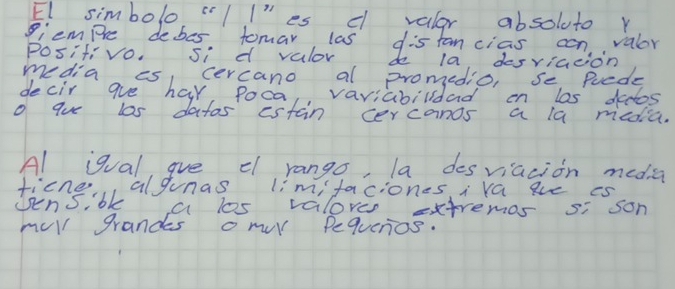 El simbolo "| |" es el valor absoluto y
siempre debes tomar las distancias con valor
positivo. Si el valor de la desviación
media es cercano al promedio, se puede
decir que hay poca variabilidad en los datos
o que los datos están cercanos a la media.
Al igual que el rango, la desviación media
tiene algunas limitaciones, ya que es
sensible a los valores extremos si son
muy grandes o muy pequeños.